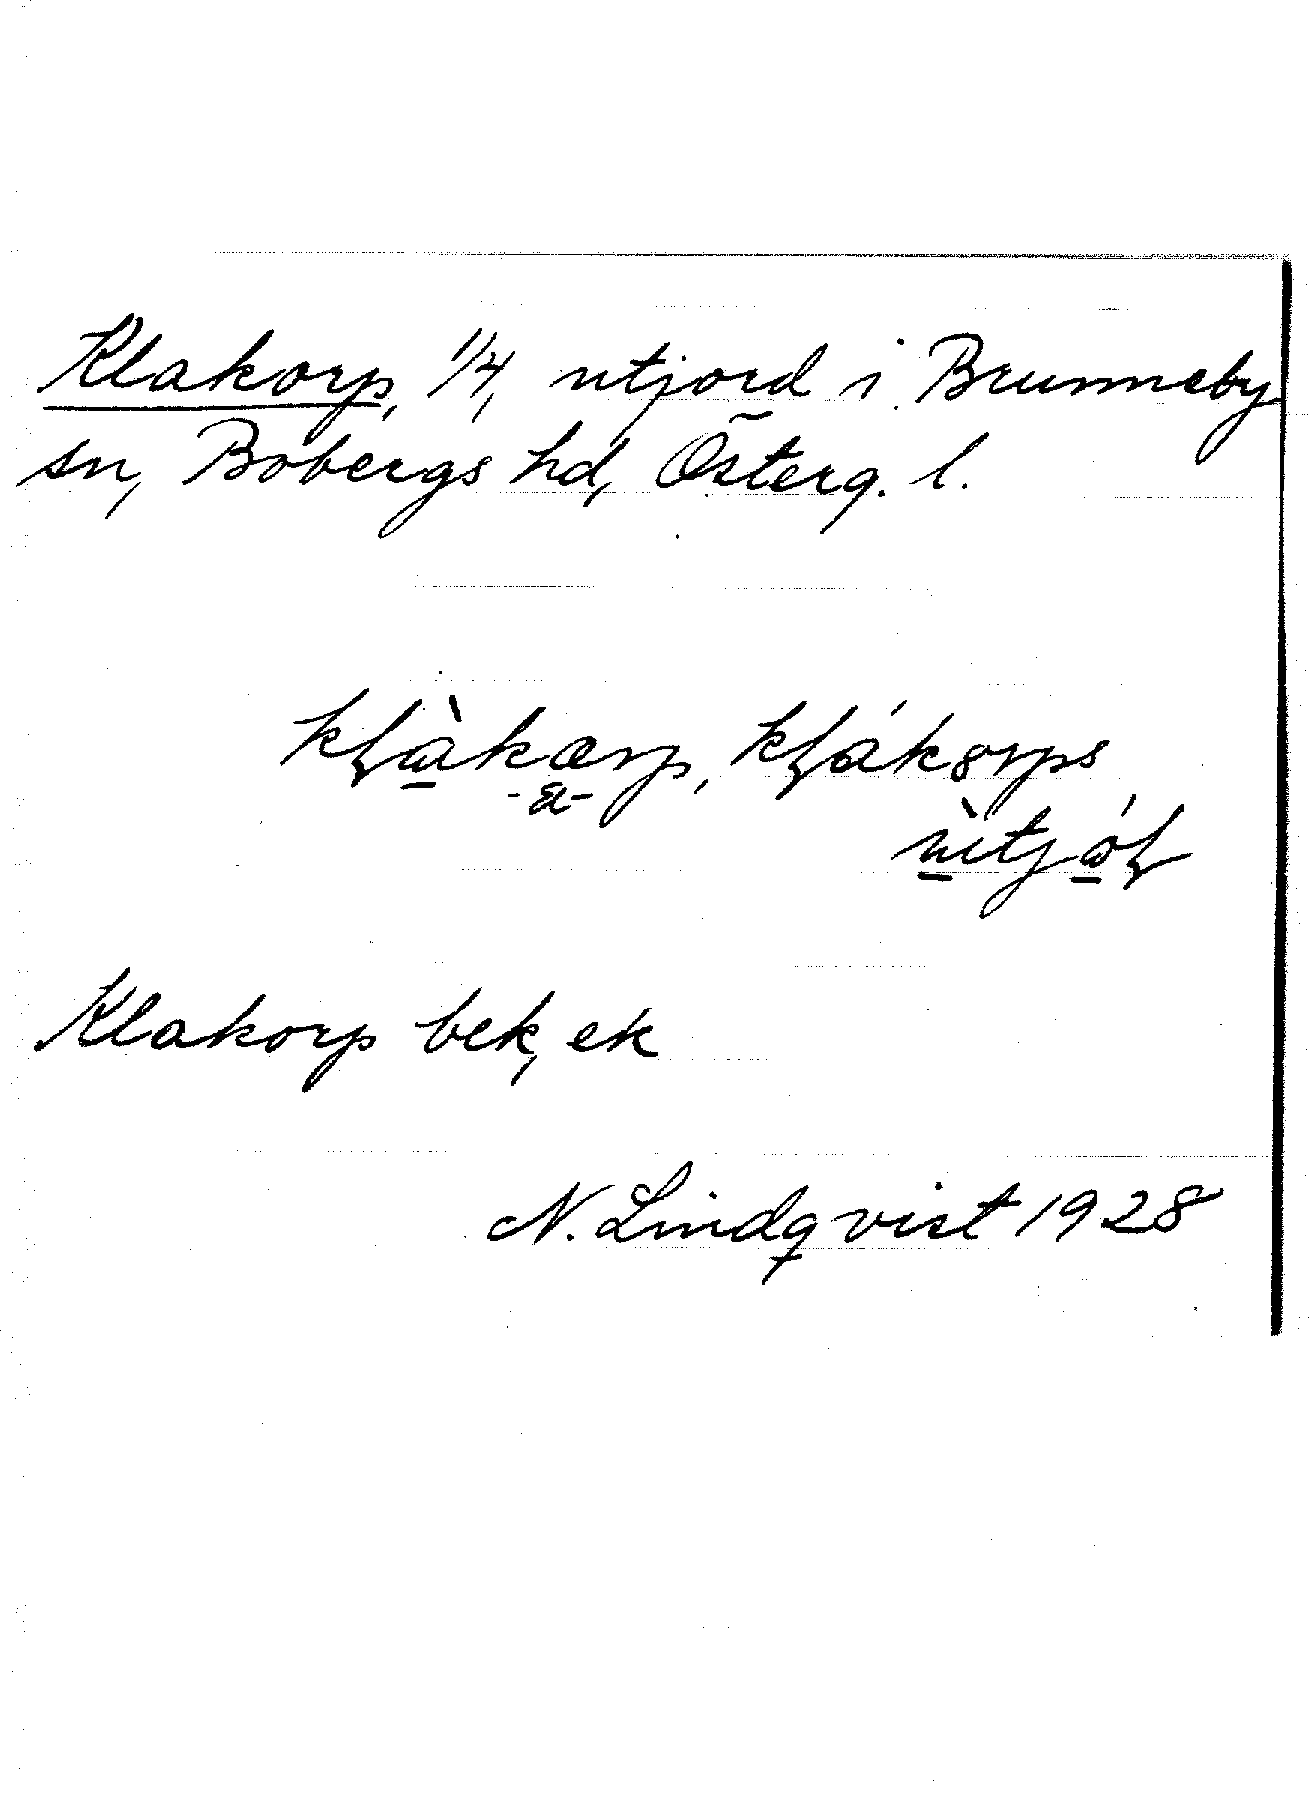 Klakorp, 1/4, utjord i Brunneby
sn, Bobergs hd, Österg. l.
Klakorp bek, ek
N. Lindqvist 1928